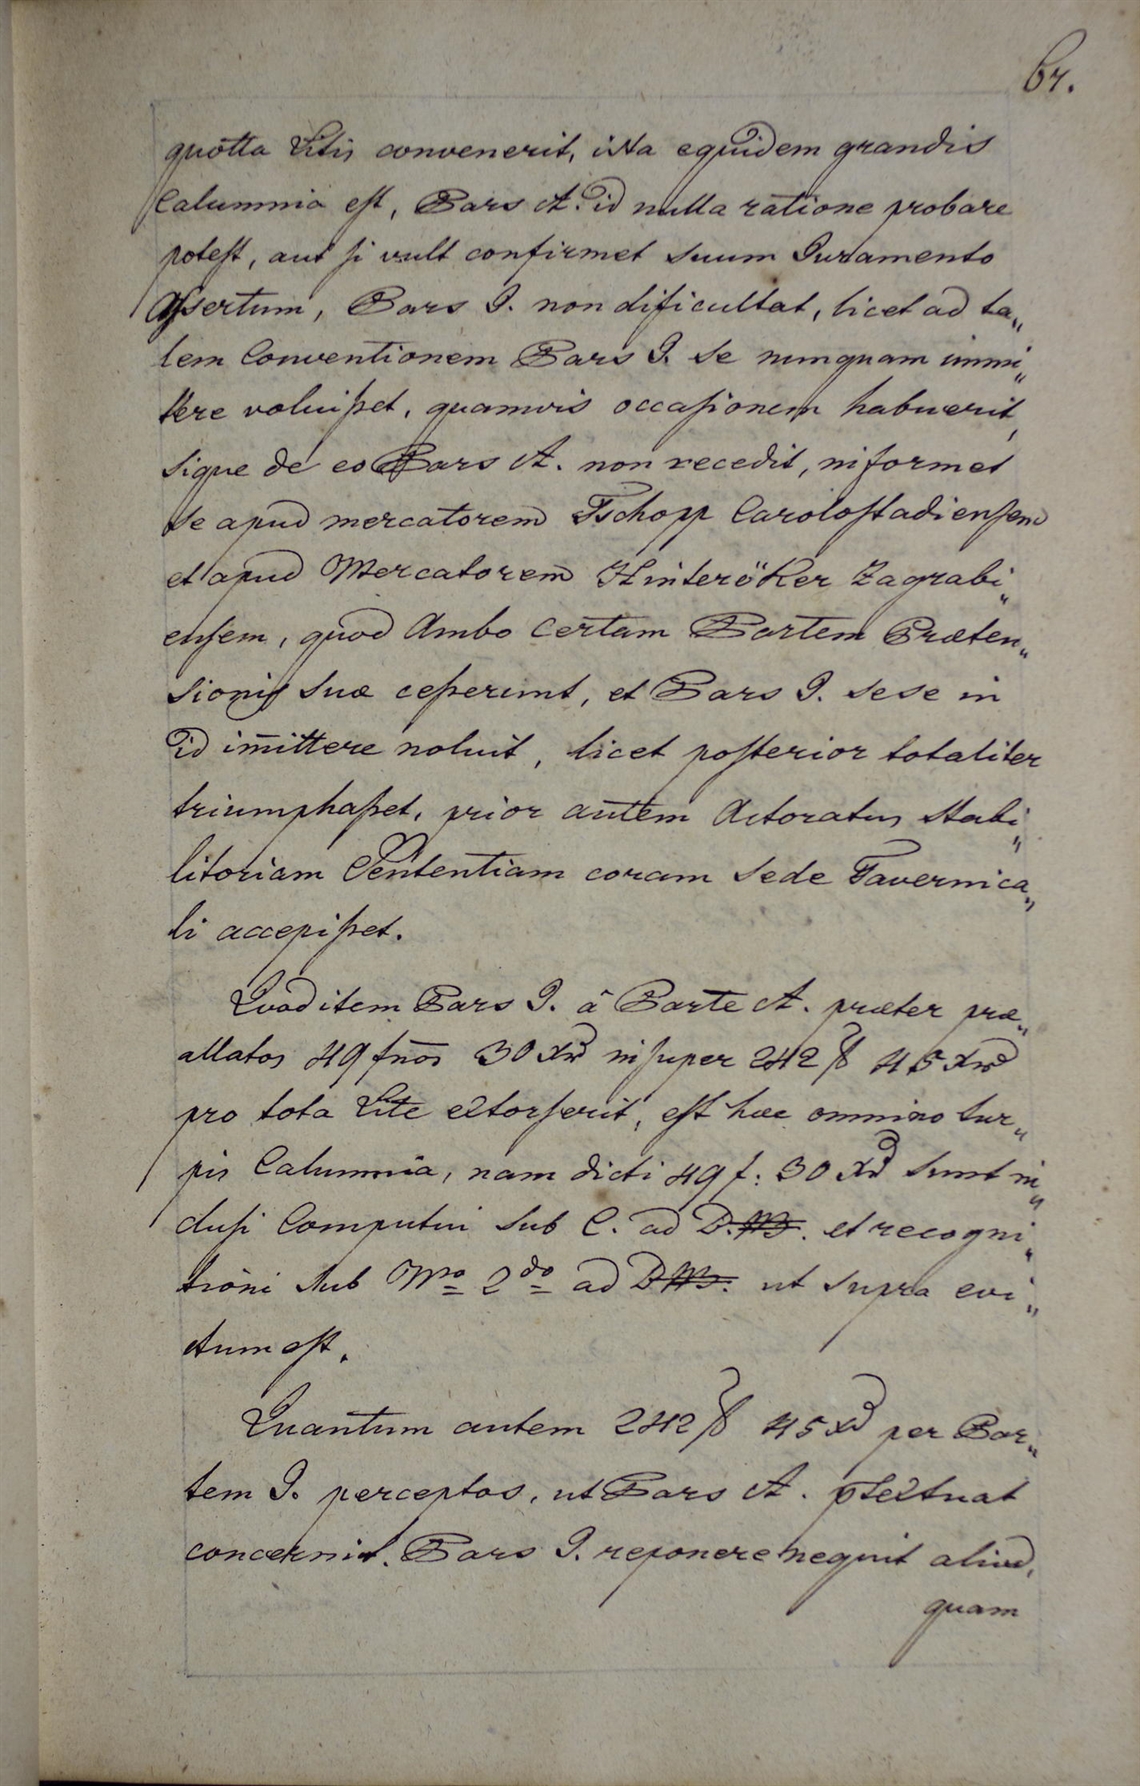 61.
quōtta Litis convenerit, ista equidem grandis
Calumnia est, Pars A. id nulla ratione probare
potest, aut si vult confirmet suum Juramento
Assertum, Pars I. non dificultat, licet ad ta„
lem Conventionem Pars I. se nunquam immi„
ttere voluisset, quamvis occasionem habuerit,
sique de eo Pars A. non recedit, informet
se apud mercatorem Tschopp Carolostadiensem
et apud Mercatorem Hinteröker Zagrabi„
ensem, quod Ambo Certam Partem Præten„
sionis suæ cesserunt, et Pars I. sese in
id im̄ittere noluit, licet posterior totaliter
triumphasset, prior autem Actoratus Stabi„
litoriam Sententiam coram Sede Tavernica„
li accepisset.
Quod item Pars I. â Parte A. præter præ„
allatos 49 fnos 30 Xrd insuper 242 f 45 Xrd
pro tota Lite extorserit, est hæc omnino tur„
pis Calumnia, nam dicti 49 f: 30 Xr sunt in„
clusi Computui sub C. ad D. et recogni„
tioni sub Nro 2do ad D ut supra evi„
ctum est.
Quantum autem 242 f 45 Xr per Par„
tem I. perceptos, ut Pars A. ptextuat
concernit. Pars I. reponere nequit aliud,
quam